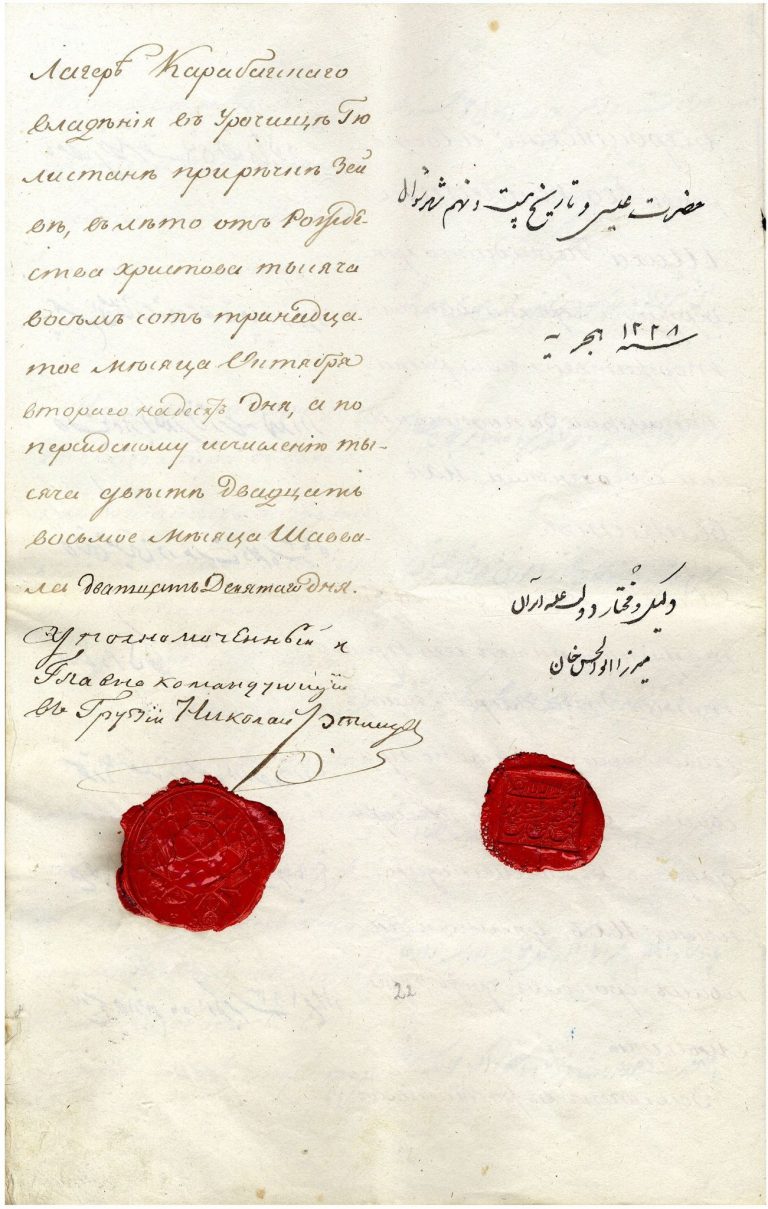 Лагерѣ Карабагскаго
владѣнія въ Урочищѣ Гю
листанѣ при рѣчкѣ Зей
вѣ, въ лѣто отъ Рожде-
ства Христова тысяча
восемь сотъ тринадца-
тое мѣсяца Октября
втораго надесять дня, а по
персидскому исчисленію ты-
сяча двѣсти двадцать
восьмое мѣсяца Шавва-
ла дватцать девятаго дня.
Уполномоченный и
Главнокомандующій
въ Грузіи Николай Ртищев
حضرت عیسی و تاریخ بیست و نهم شهر شوال
سنه ۱۲۲۸ هجریه
وکیل و مختار دولت علیه ایران
میرزا ابوالحسن خان
22